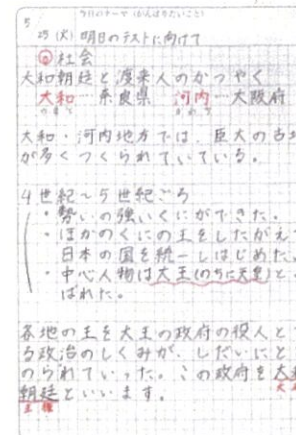 今日のテーマ（がんばりたいこと）
5/25（火）明日のテストに向けて
社会
大和朝廷と渡来人のかつやく
大和…奈良県 河内…大阪府
大和・河内地方では、巨大の古
が多くつくられていている。
4世紀～5世紀ごろ
・勢いの強いくにができた。
・ほかのくにの王をしたがえ
日本の国を統一しはじめた。
・中心人物は大王(のちに天皇)と
ばれた。
各地の王を大王の政府の役人と
る政治のしくみが、しだいにと
のられていった。この政府を大
朝廷といいます。